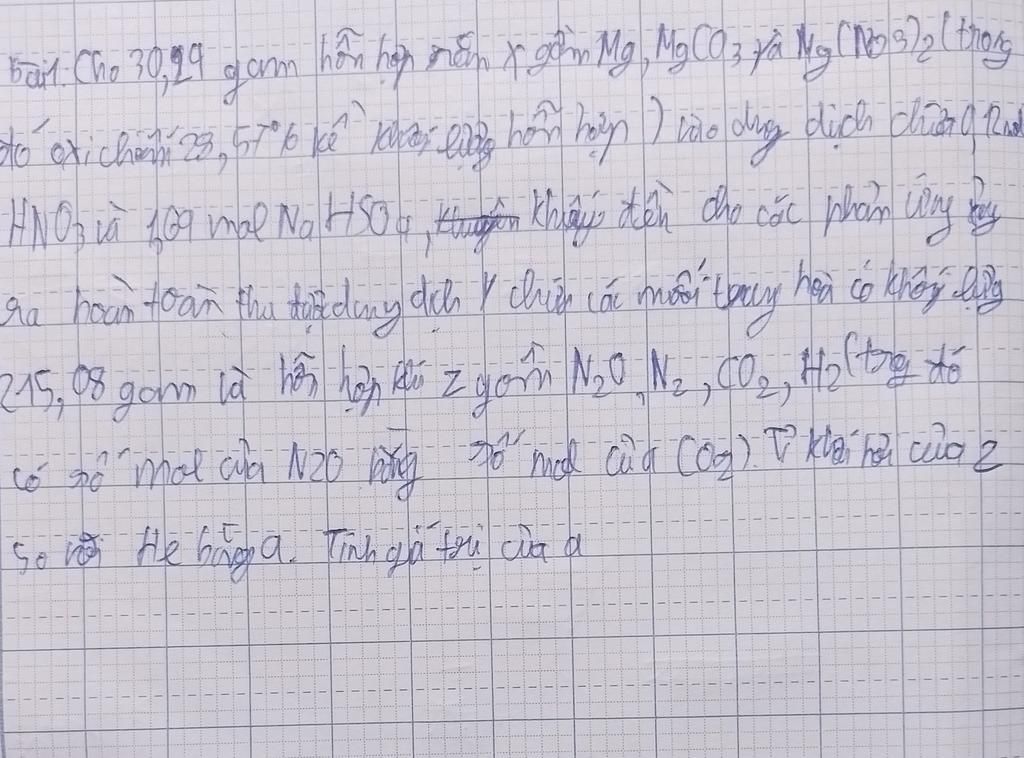 Bài 1. Cho 30,24 gam hỗn hợp rắn X gồm Mg, MgCO3 và Mg(NO3)2 (trong
đó oxi chiếm 28,57% về khối lượng hỗn hợp) vào dung dịch chứa 0,12 mol
HNO3 và 1,64 mol NaHSO4, khuấy đều cho các phản ứng xảy
ra hoàn toàn thu được dung dịch Y chứa các muối trung hoà có khối lượng
215,08 gam và hỗn hợp khí Z gồm N2O, N2, CO2, H2 (trong đó
có số mol của N2O bằng số mol của CO2). Tỉ khối hơi của Z
so với He bằng a. Tính giá trị của a